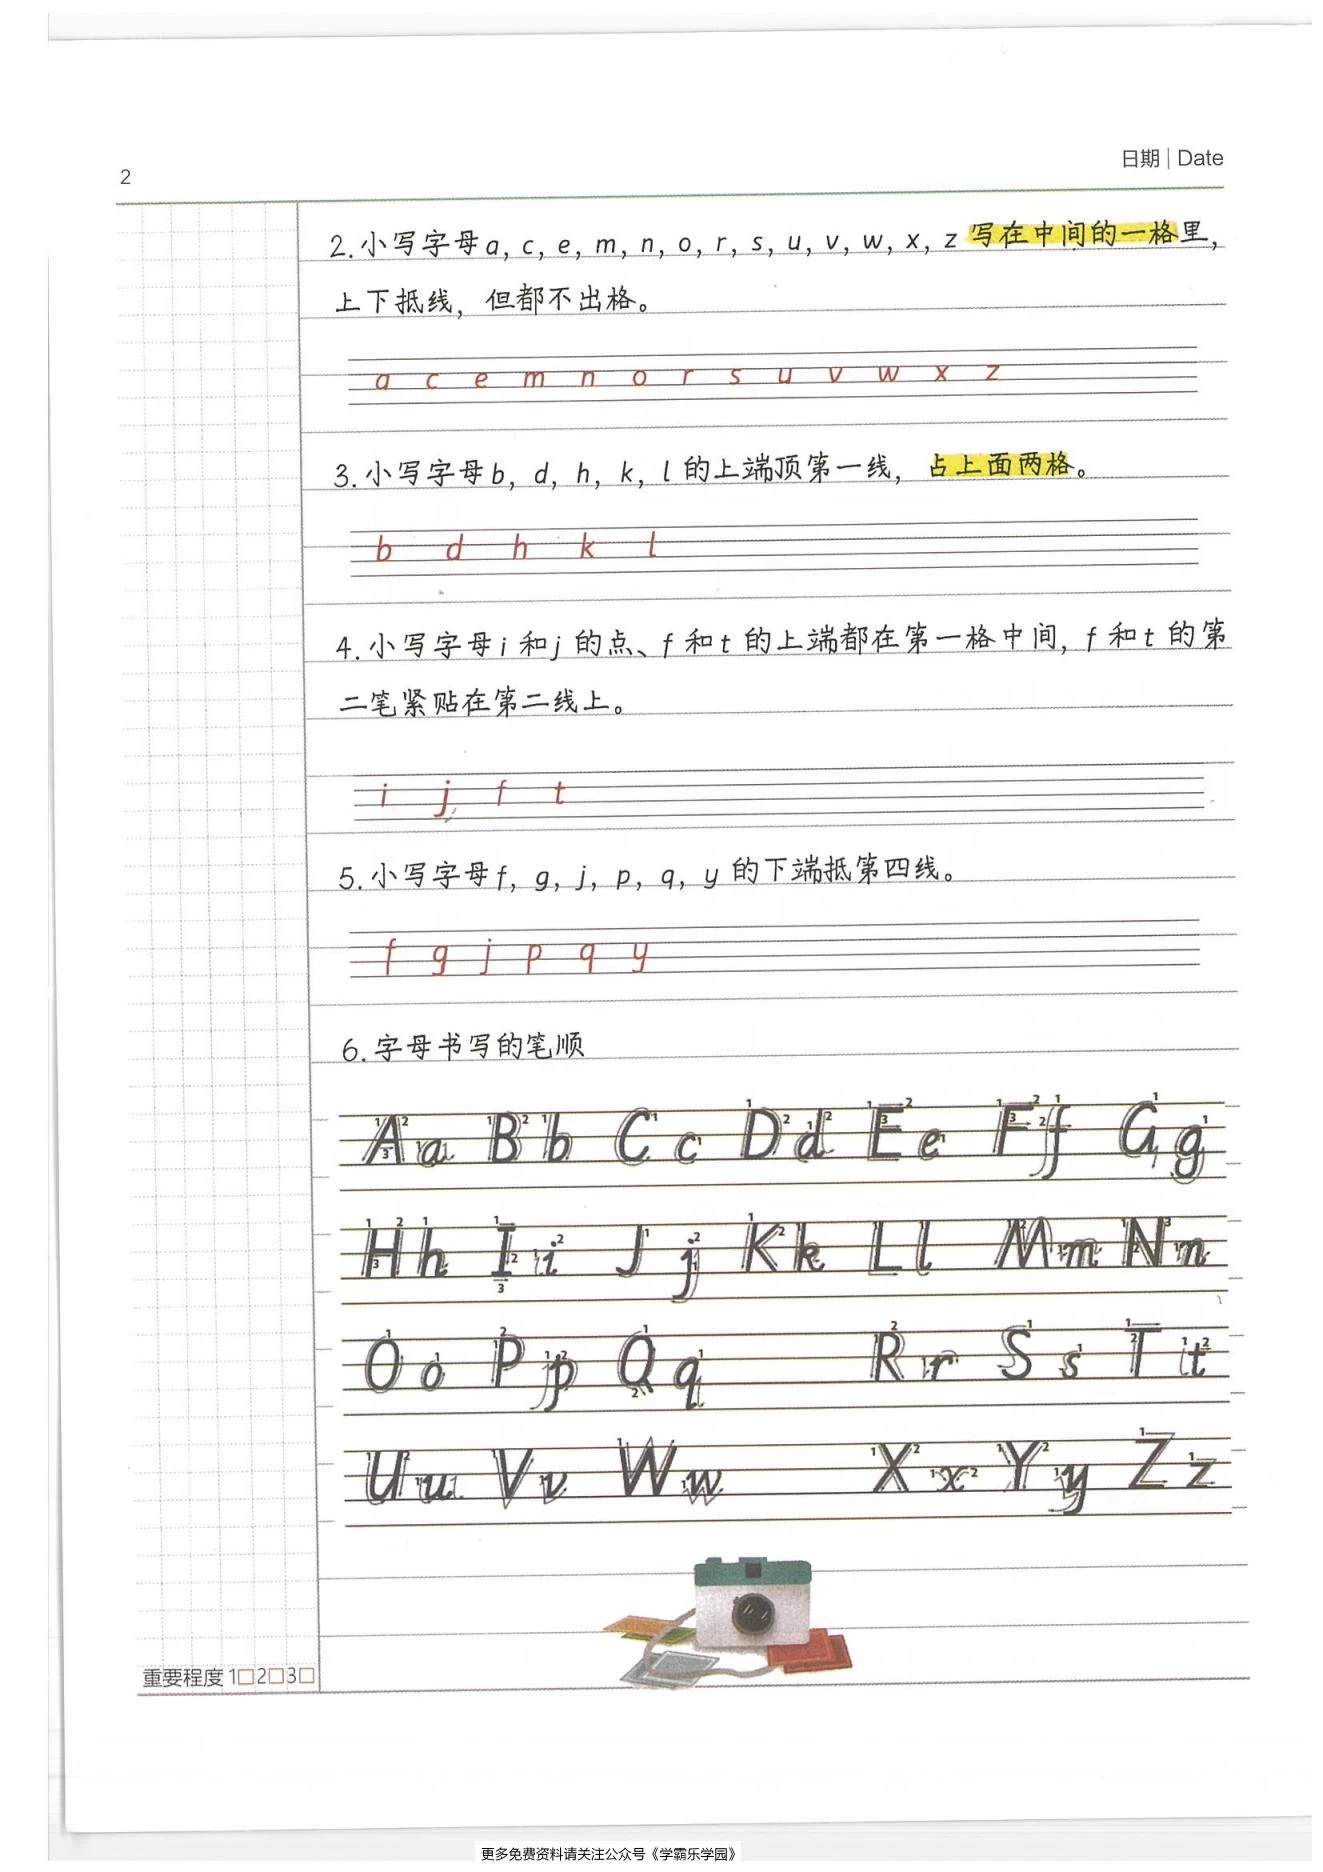 日期 | Date
2
2.小写字母a, c, e, m, n, o, r, s, u, v, w, x, z 写在中间的一格里,
上下抵线, 但都不出格。
a c e m n o r s u v w x z
3.小写字母b, d, h, k, l 的上端顶第一线, 占上面两格。
b d h k l
4.小写字母i 和j 的点、f 和t 的上端都在第一格中间, f 和t 的第
二笔紧贴在第二线上。
i j f t
5.小写字母f, g, j, p, q, y 的下端抵第四线。
f g j p q y
6.字母书写的笔顺
A a B b C c D d E e F f G g
H h I i J j K k L l M m N n
O o P p Q q R r S s T t
U u V v W w X x Y y Z z
重要程度 1□2□3□
更多免费资料请关注公众号《学霸乐学园》